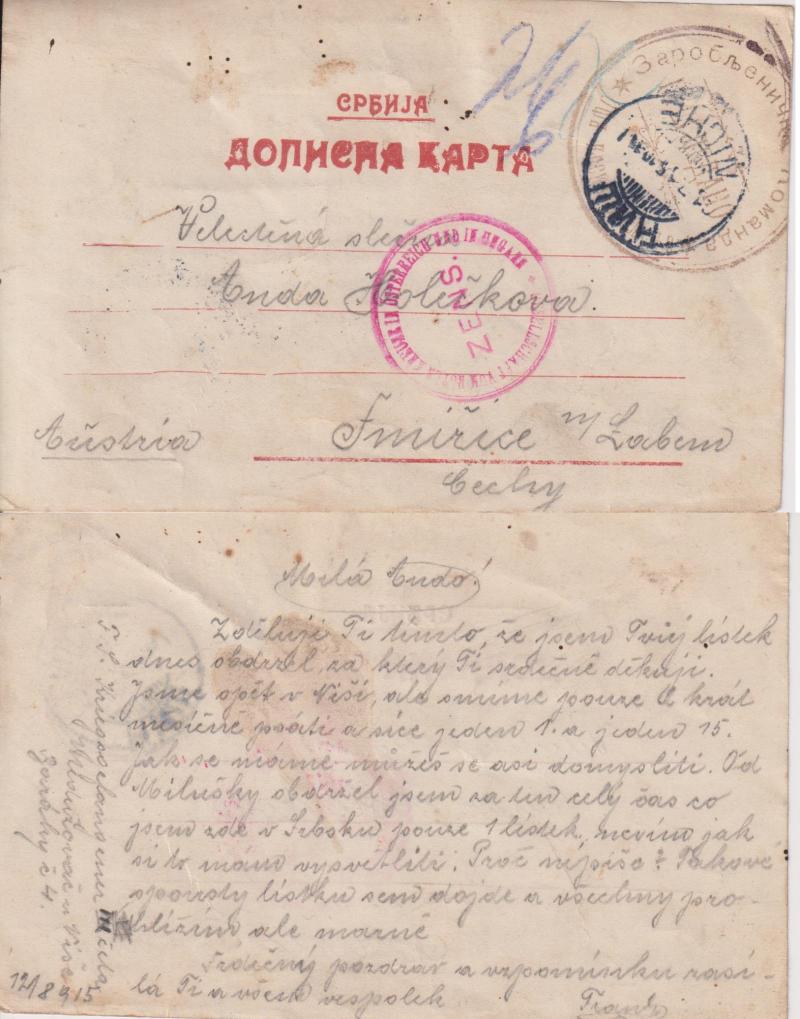 СРБИЈА
ДОПИСНА КАРТА
Заробљеничка Команда
НИШ NICHE
Velectěná slečna
Anda Holečkova.
ZENS.
ÖSTERREICH UND IN UNGARN
GESELLSCHAFT VOM ROTEN KREUZE IN
Austria
Smiřice n/Labem
Čechy
Milá Ando!
Zděluji Ti tímto, že jsem Tvůj lístek
dnes obdržel, za který Ti srdečně děkuji.
Jsme opět v Niši, ale smíme pouze 2 krát
měsíčně psáti a sice jeden 1. a jeden 15.
Jak se máme můžeš se asi domysliti. Od
Milušky obdržel jsem za ten celý čas co
jsem zde v Srbsku pouze 1 lístek, nevím jak
si to mám vysvětliti. Proč nepíše? Takové
spousty lístků sem dojde a všechny pro-
hlížím ale marně
Srdečný pozdrav a vzpomínku zasí-
lá Ti a všem vespolek
Frant.
Kriegsgefangener
u Niše
č 4.
12/8 915